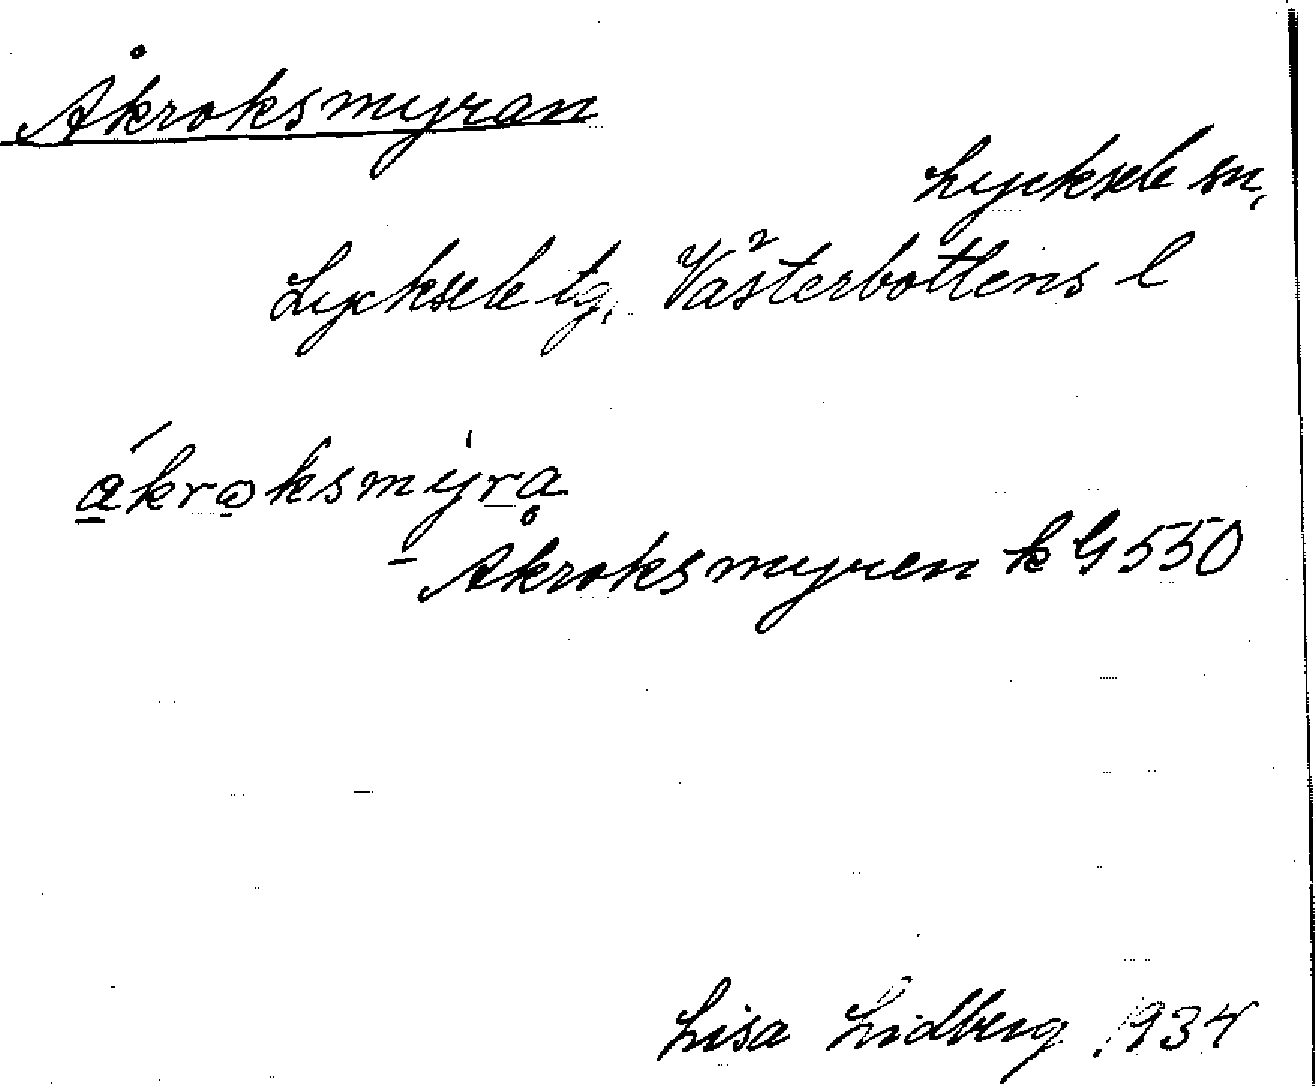 Åkroksmyran
Lycksele sn,
Lycksele tg, Västerbottens l
åkroksmyra
Åkroksmyren k G 550
Lisa Lidberg 1934